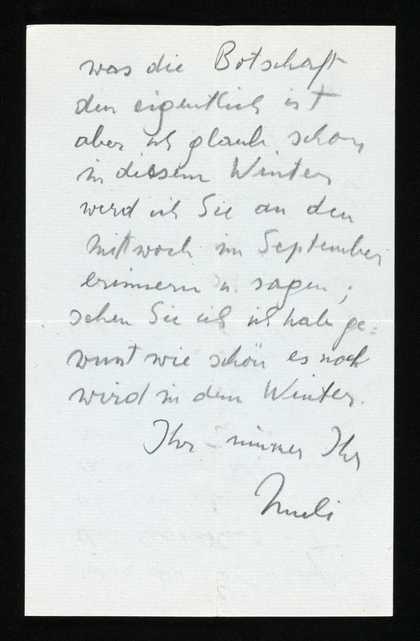 was die Botschaft
den eigentlich ist
aber ich glaube schon
in diesem Winter
werd ich Sie an den
Mittwoch im September
erinnern u. sagen;
sehen Sie ich ich habe ge=
wusst wie schön es noch
wird in dem Winter.
Ihr immer Ihr